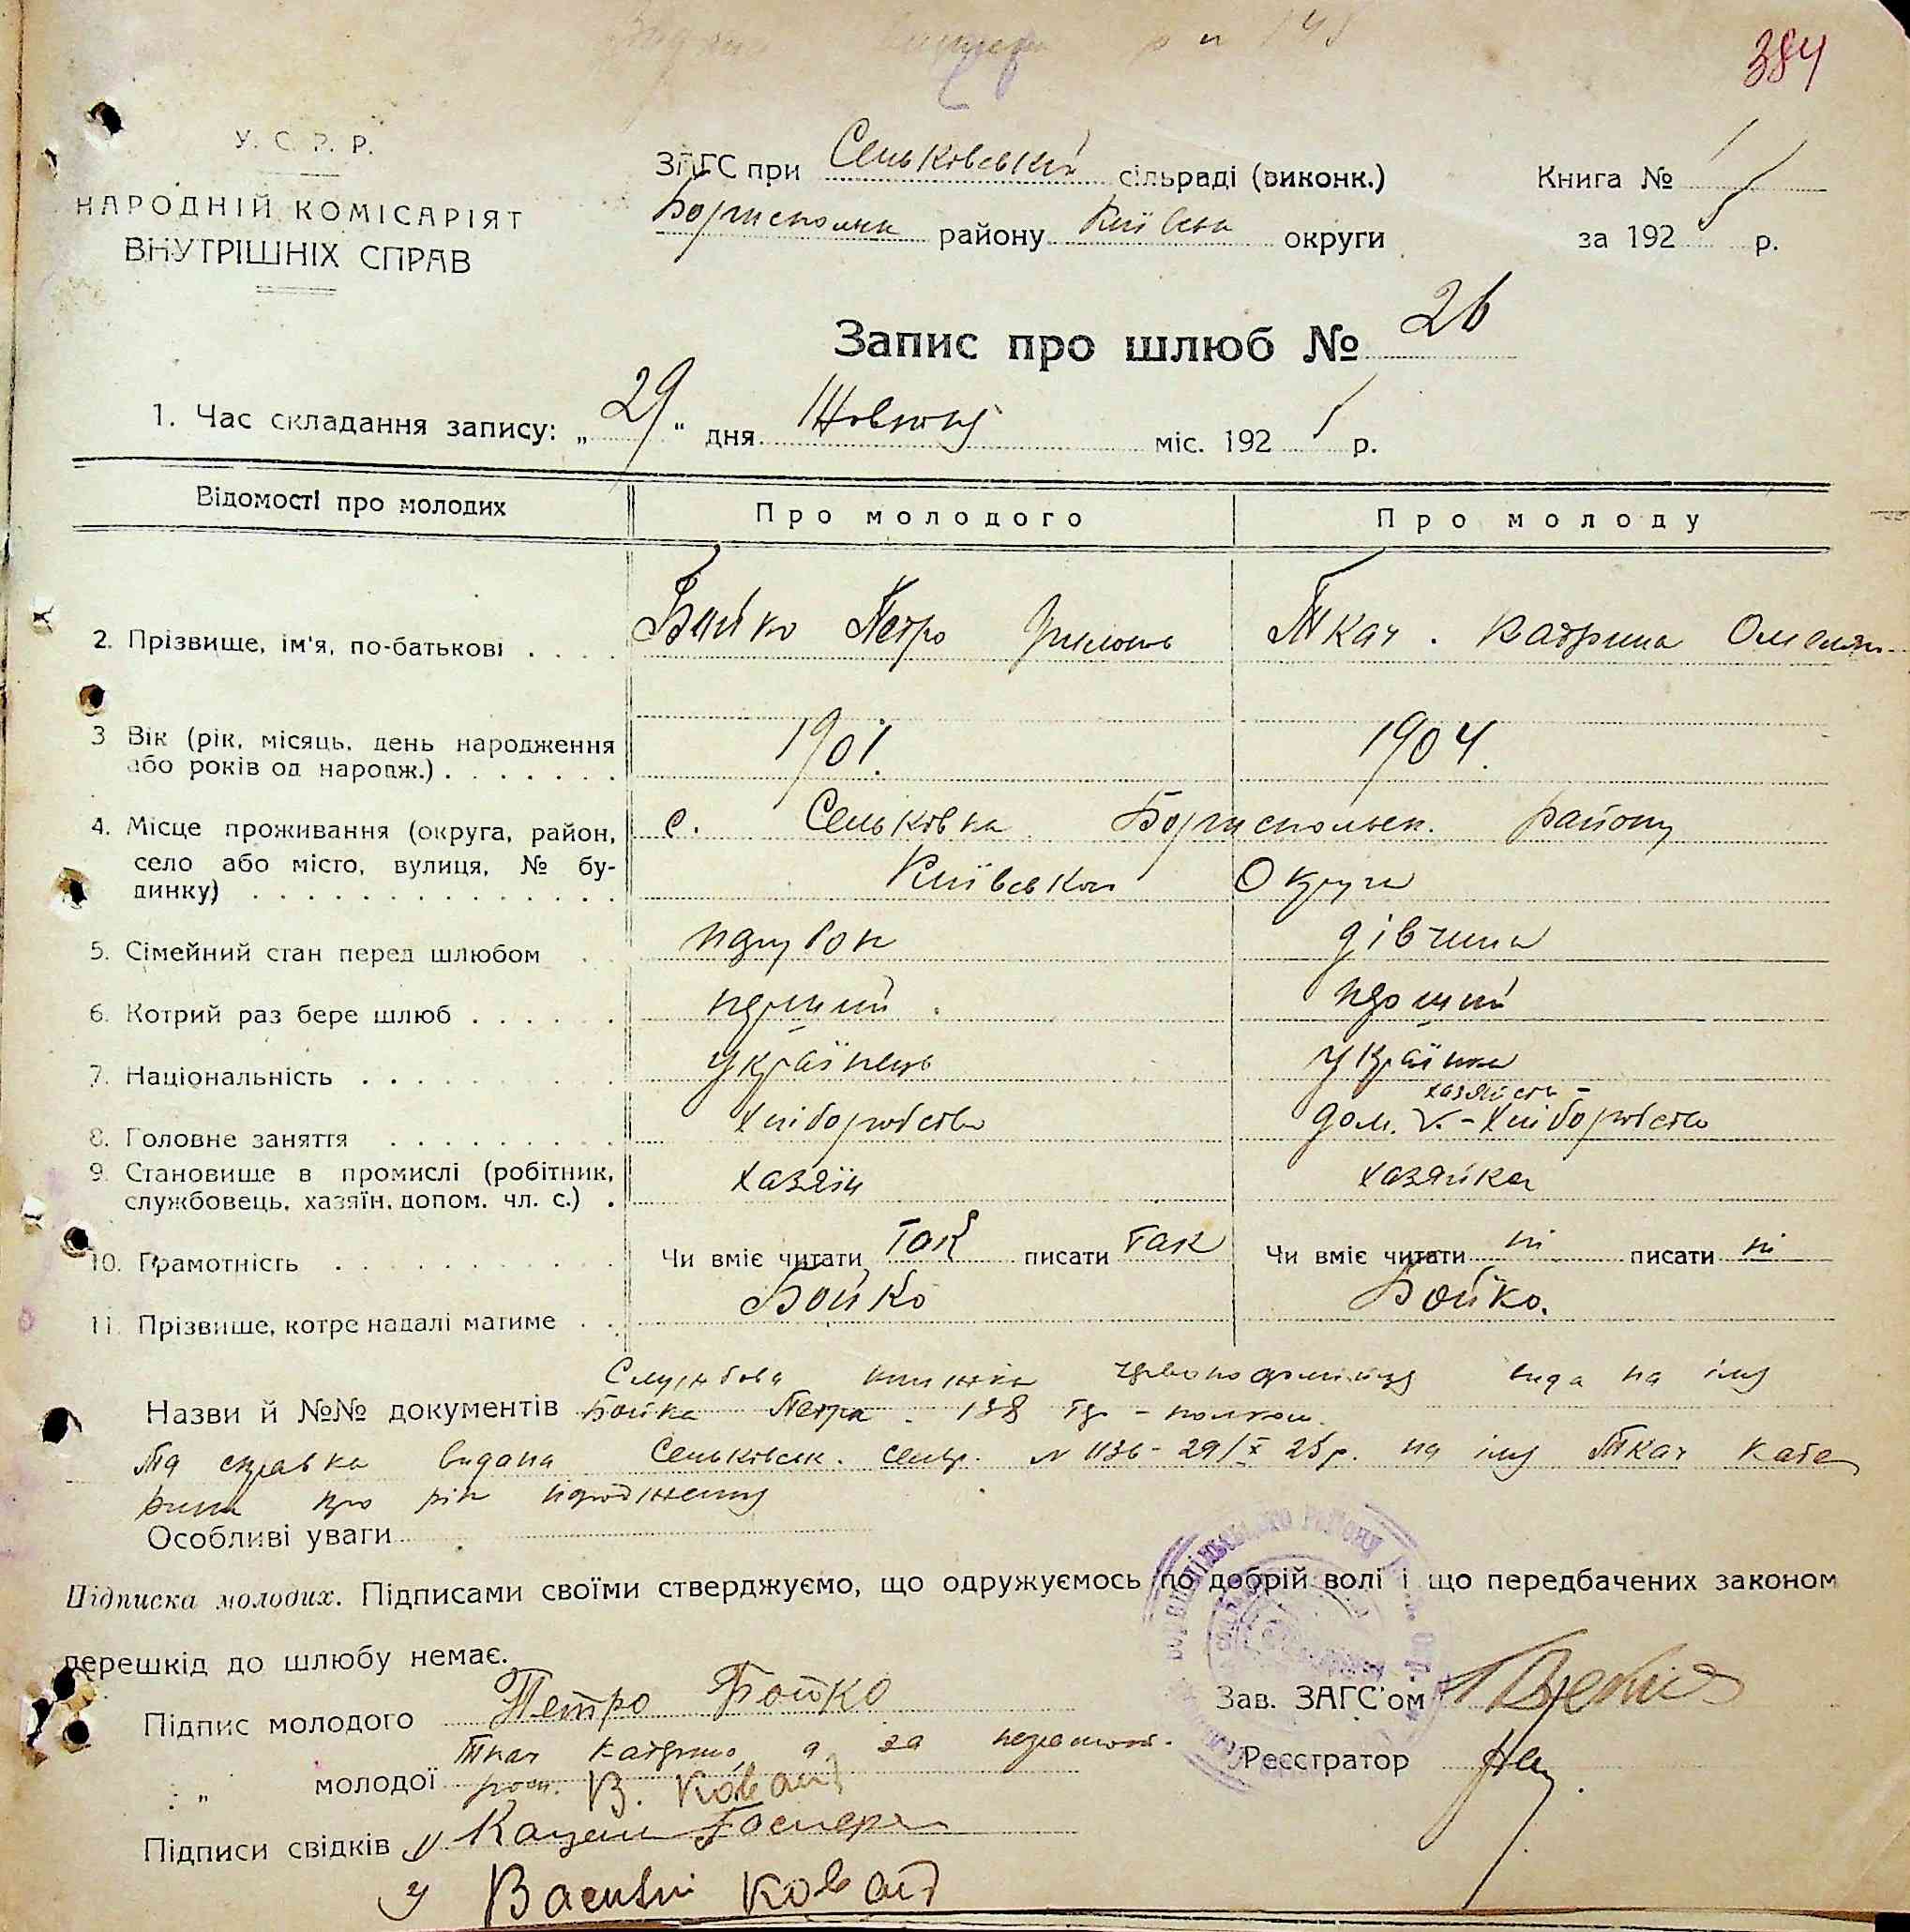 384
У. С. Р. Р.
НАРОДНІЙ КОМІСАРІЯТ
ВНУТРІШНІХ СПРАВ
ЗАГС при Сеньковський сільраді (виконк.)
Бориспольск району Київськ округи
Книга № 1
за 1925 р.
Запис про шлюб № 26
1. Час складання запису: „29“ дня Жовтня міс. 1925 р.
Відомості про молодих Про молодого Про молоду
2. Прізвище, ім'я, по-батькові . . . . Бойко Петро Ткач . Катрина Омелян-
3 Вік (рік, місяць, день народження 1901. 1904.
або років од народж.) . . . . . . .
4. Місце проживання (округа, район, с. Сеньковка Бориспольск. району
село або місто, вулиця, № бу- Київської Округи
динку) . . . . . . . . . . . . . .
5. Сімейний стан перед шлюбом . . парубок дівчина
6. Котрий раз бере шлюб . . . . . . перший перший
7. Національність . . . . . . . . . українець українка
хазяйств -
8. Головне заняття . . . . . . . . . хліборобство дом. V. - хліборобство
9. Становище в промислі (робітник, хазяїн хазяйка
службовець, хазяїн, допом. чл. с.) .
10. Грамотність . . . . . . . . . . . Чи вміє читати так писати так Чи вміє читати ні писати ні
11. Прізвище, котре надалі матиме . . Бойко Бойко.
Службова книжка червоноармійця вида на імя
Назви й №№ документів Бойка Петра . 138 - полком.
Та справка видана Сеньковск. сельр. № 1136 - 29/X 25р. на імя Ткач Кате
рини про рік народження
Особливі уваги
Підписка молодих. Підписами своїми стверджуємо, що одружуємось по добрій волі і що передбачених законом
перешкід до шлюбу немає.
Підпис молодого Петро Бойко
Зав. ЗАГС'ом
Ткач Катрина, а за неграмот.
„ молодої розп. В. Коваль
Реєстратор
Підписи свідків
Василь Коваль